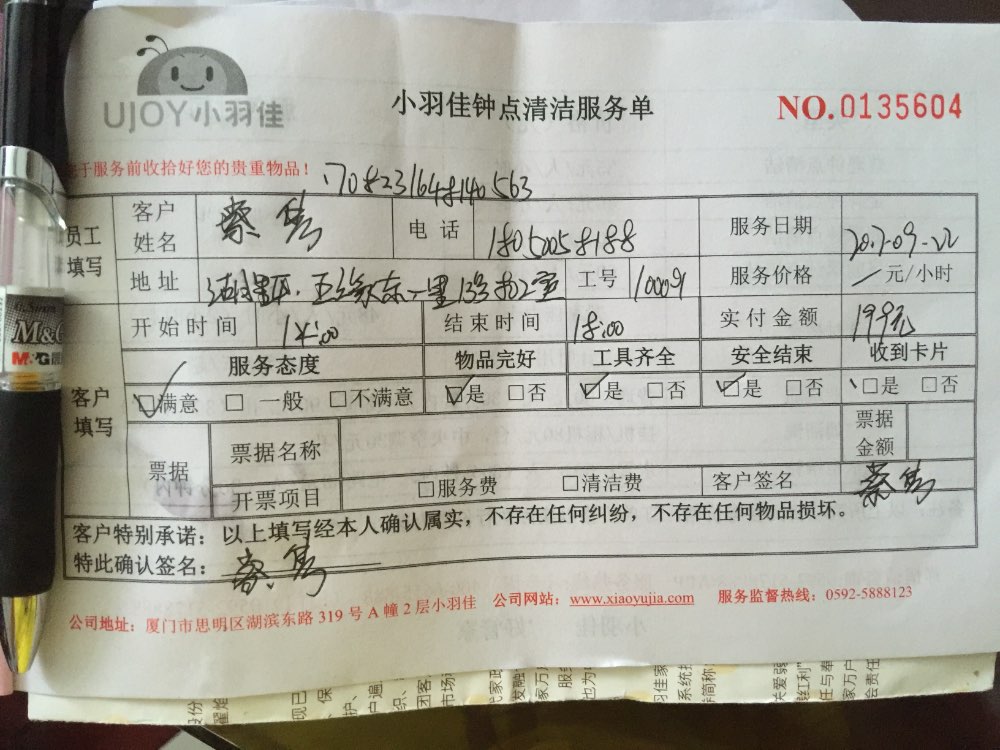 UJOY小羽佳
小羽佳钟点清洁服务单
NO.0135604
于服务前收拾好您的贵重物品！
170823164814056​3
员工填写 客户姓名 蔡隽 电话 18050058188 服务日期 2017-09-22
地址 工号 服务价格 元/小时
开始时间 14:00 结束时间 18:00 实付金额 199元
客户填写 服务态度 物品完好 工具齐全 安全结束 收到卡片
☑满意 □一般 □不满意 ☑是 □否 ☑是 □否 ☑是 □否 □是 □否
票据 票据名称 票据金额
开票项目 □服务费 □清洁费 客户签名 蔡隽
客户特别承诺：以上填写经本人确认属实，不存在任何纠纷，不存在任何物品损坏。
特此确认签名：蔡隽
公司地址：厦门市思明区湖滨东路 319 号 A 幢 2 层小羽佳 公司网站：www.xiaoyujia.com 服务监督热线：0592-5888123
M&G